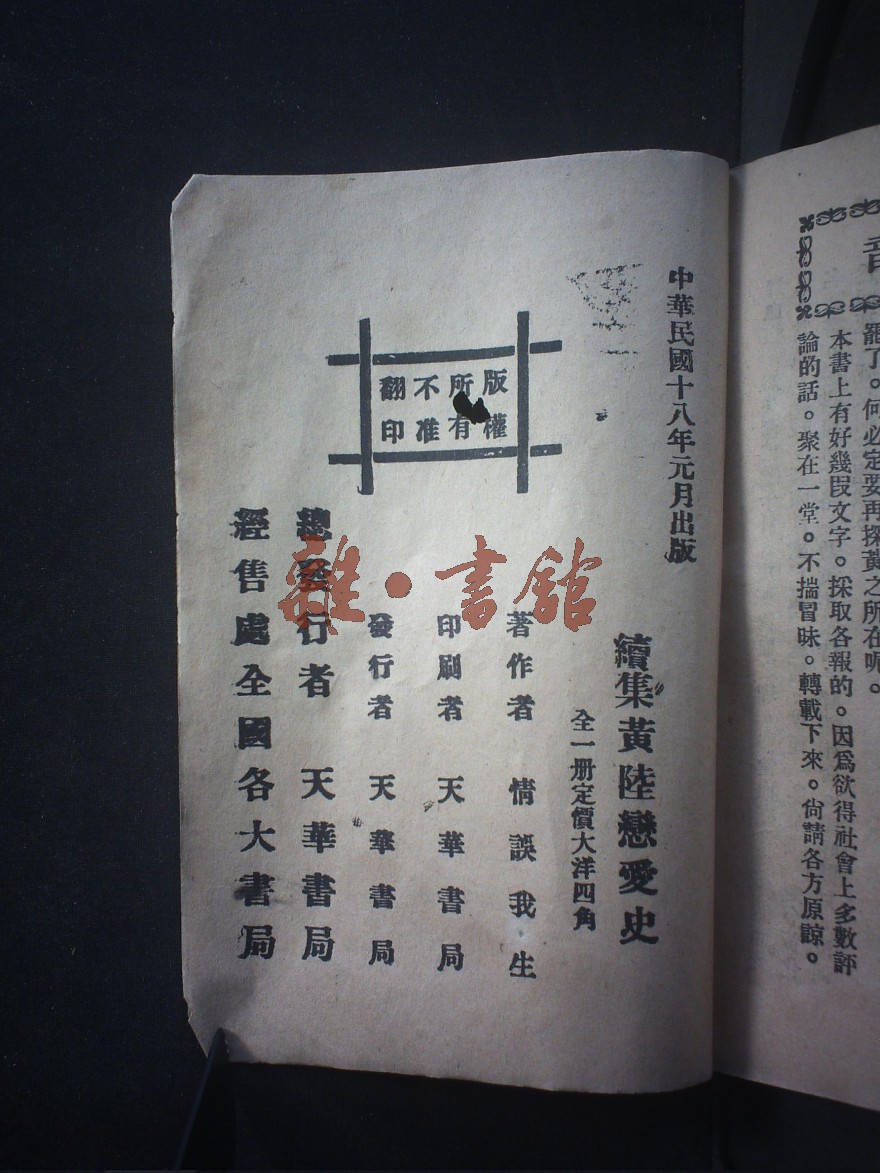 音
罷了。何必定要再探黃之所在呢。
本書上有好幾段文字。採取各報的。因爲欲得社會上多數評
論的話。聚在一堂。不揣冒昧。轉載下來。尙請各方原諒。
中華民國十八年元月出版
續集黃陸戀愛史
全一册定價大洋四角
版權
所有
不准
翻印
著作者 情誤我生
印刷者 天華書局
發行者 天華書局
總發行者 天華書局
經售處全國各大書局
雜·書館